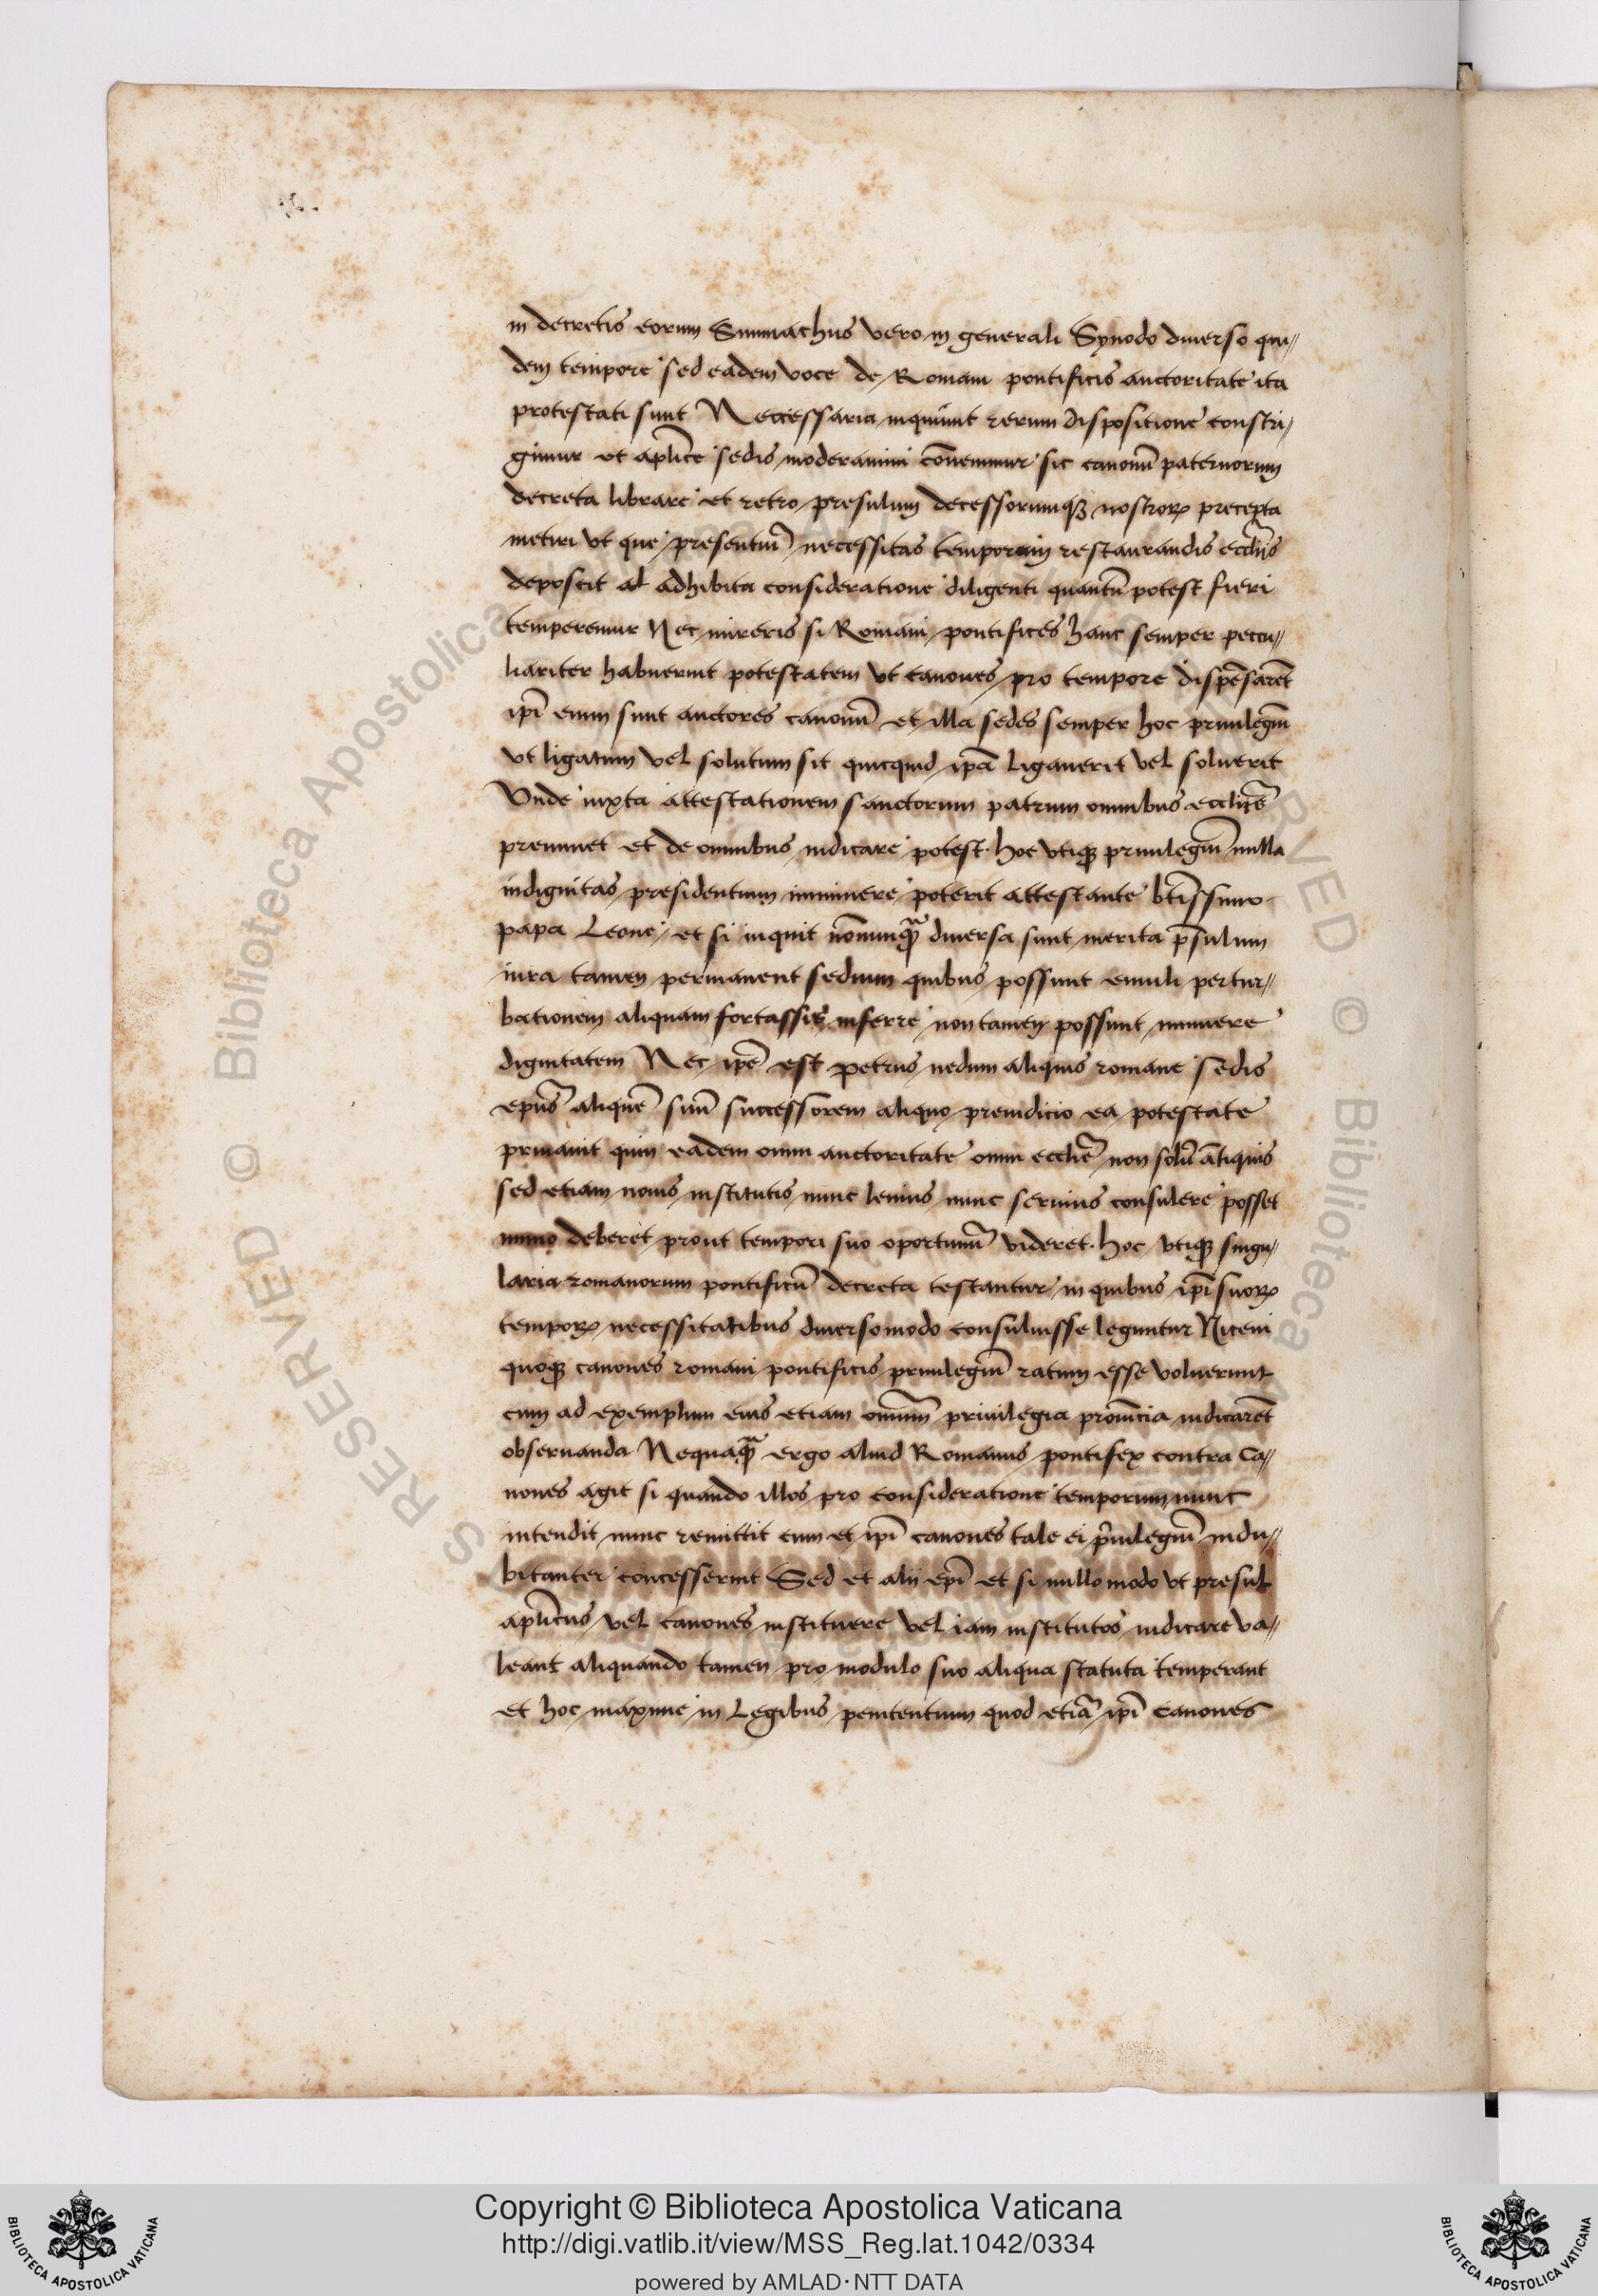 in decretis eorum Simmachus vero in generali Synodo diuerso qui„
dem tempore sed eadem voce de Romani pontificis auctoritate ita
protestati sunt Neccessaria inquiunt rerum dispositione constri„
gimur et aplīce sedis moderamini cōuenimur sic canonū paternorum
decreta librare et retro presulum decessorumqꝫ nostroꝝ precepta
metiri vt que presentiū necessitas temporum restaurandis eccliīs
deposcit al adhibita consideratione diligenti quantū potest fieri
temperemur Nec mireris si Romani pontifices hanc semper peccu„
liariter habuerint potestatem vt canones pro tempore dispēsarēt
ipī enim sunt auctores canonū et illa sedes semper hoc priuilegiū
vt ligatum vel solutum sit quicquid ipā ligauerit vel soluerit
Vnde iuxta attestationem sanctorum patrum omnibus eccliīs
preminet et de omnibus iudicare potest. hoc vtiqꝫ priuilegiū nulla
indignitas presidentium imminere poterit attestante btīssimo
papa Leone, et si inquit nōnunqꝫ̄ diuersa sunt merita p̄sulum
iura tamen permanent sedium quibus possunt emuli pertur„
bationem aliquam fortassis inferre non tamen possunt minuere
dignitatem Nec ipē est petrus nedum aliquis romane sedis
epūs aliquē suū successorem aliquo preiudicio ea potestate
priuauit quin eadem omni auctoritate omni eccliē non solū ātiquis
sed etiam nouis institutis nunc lenius nunc seruius consulere posset
immo deberet prout tempori suo oportunū videret. hoc vtiqꝫ singu„
laria romanorum pontificū decreta testantur in quibus ipī suoꝝ
tempoꝝ necessitatibus diuersomodo consuluisse leguntur Niceni
quoqꝫ canones romani pontificis priuilegiū ratum esse voluerunt
cum ad exemplum eius etiam omniū priuilegia prouīcia iudicarēt
obseruanda Nequaqꝫ̄ ergo aliud Romanus pontifex contra Ca„
nones agit si quando illos pro consideratione temporum nunc
intendit nunc remittit cum et ipī canones tale ei p̄uilegiū indu„
bitanter concesserint Sed et alii epī et si nullo modo vt presul
aplīcus vel canones instituere vel iam institutos iudicare va„
leant aliquando tamen pro modulo suo aliqua statuta temperant
et hoc maxime in Legibus penitentium quod etiā ipī canones
Copyright © Biblioteca Apostolica Vaticana
http://digi.vatlib.it/view/MSS_Reg.lat.1042/0334
powered by AMLAD·NTT DATA